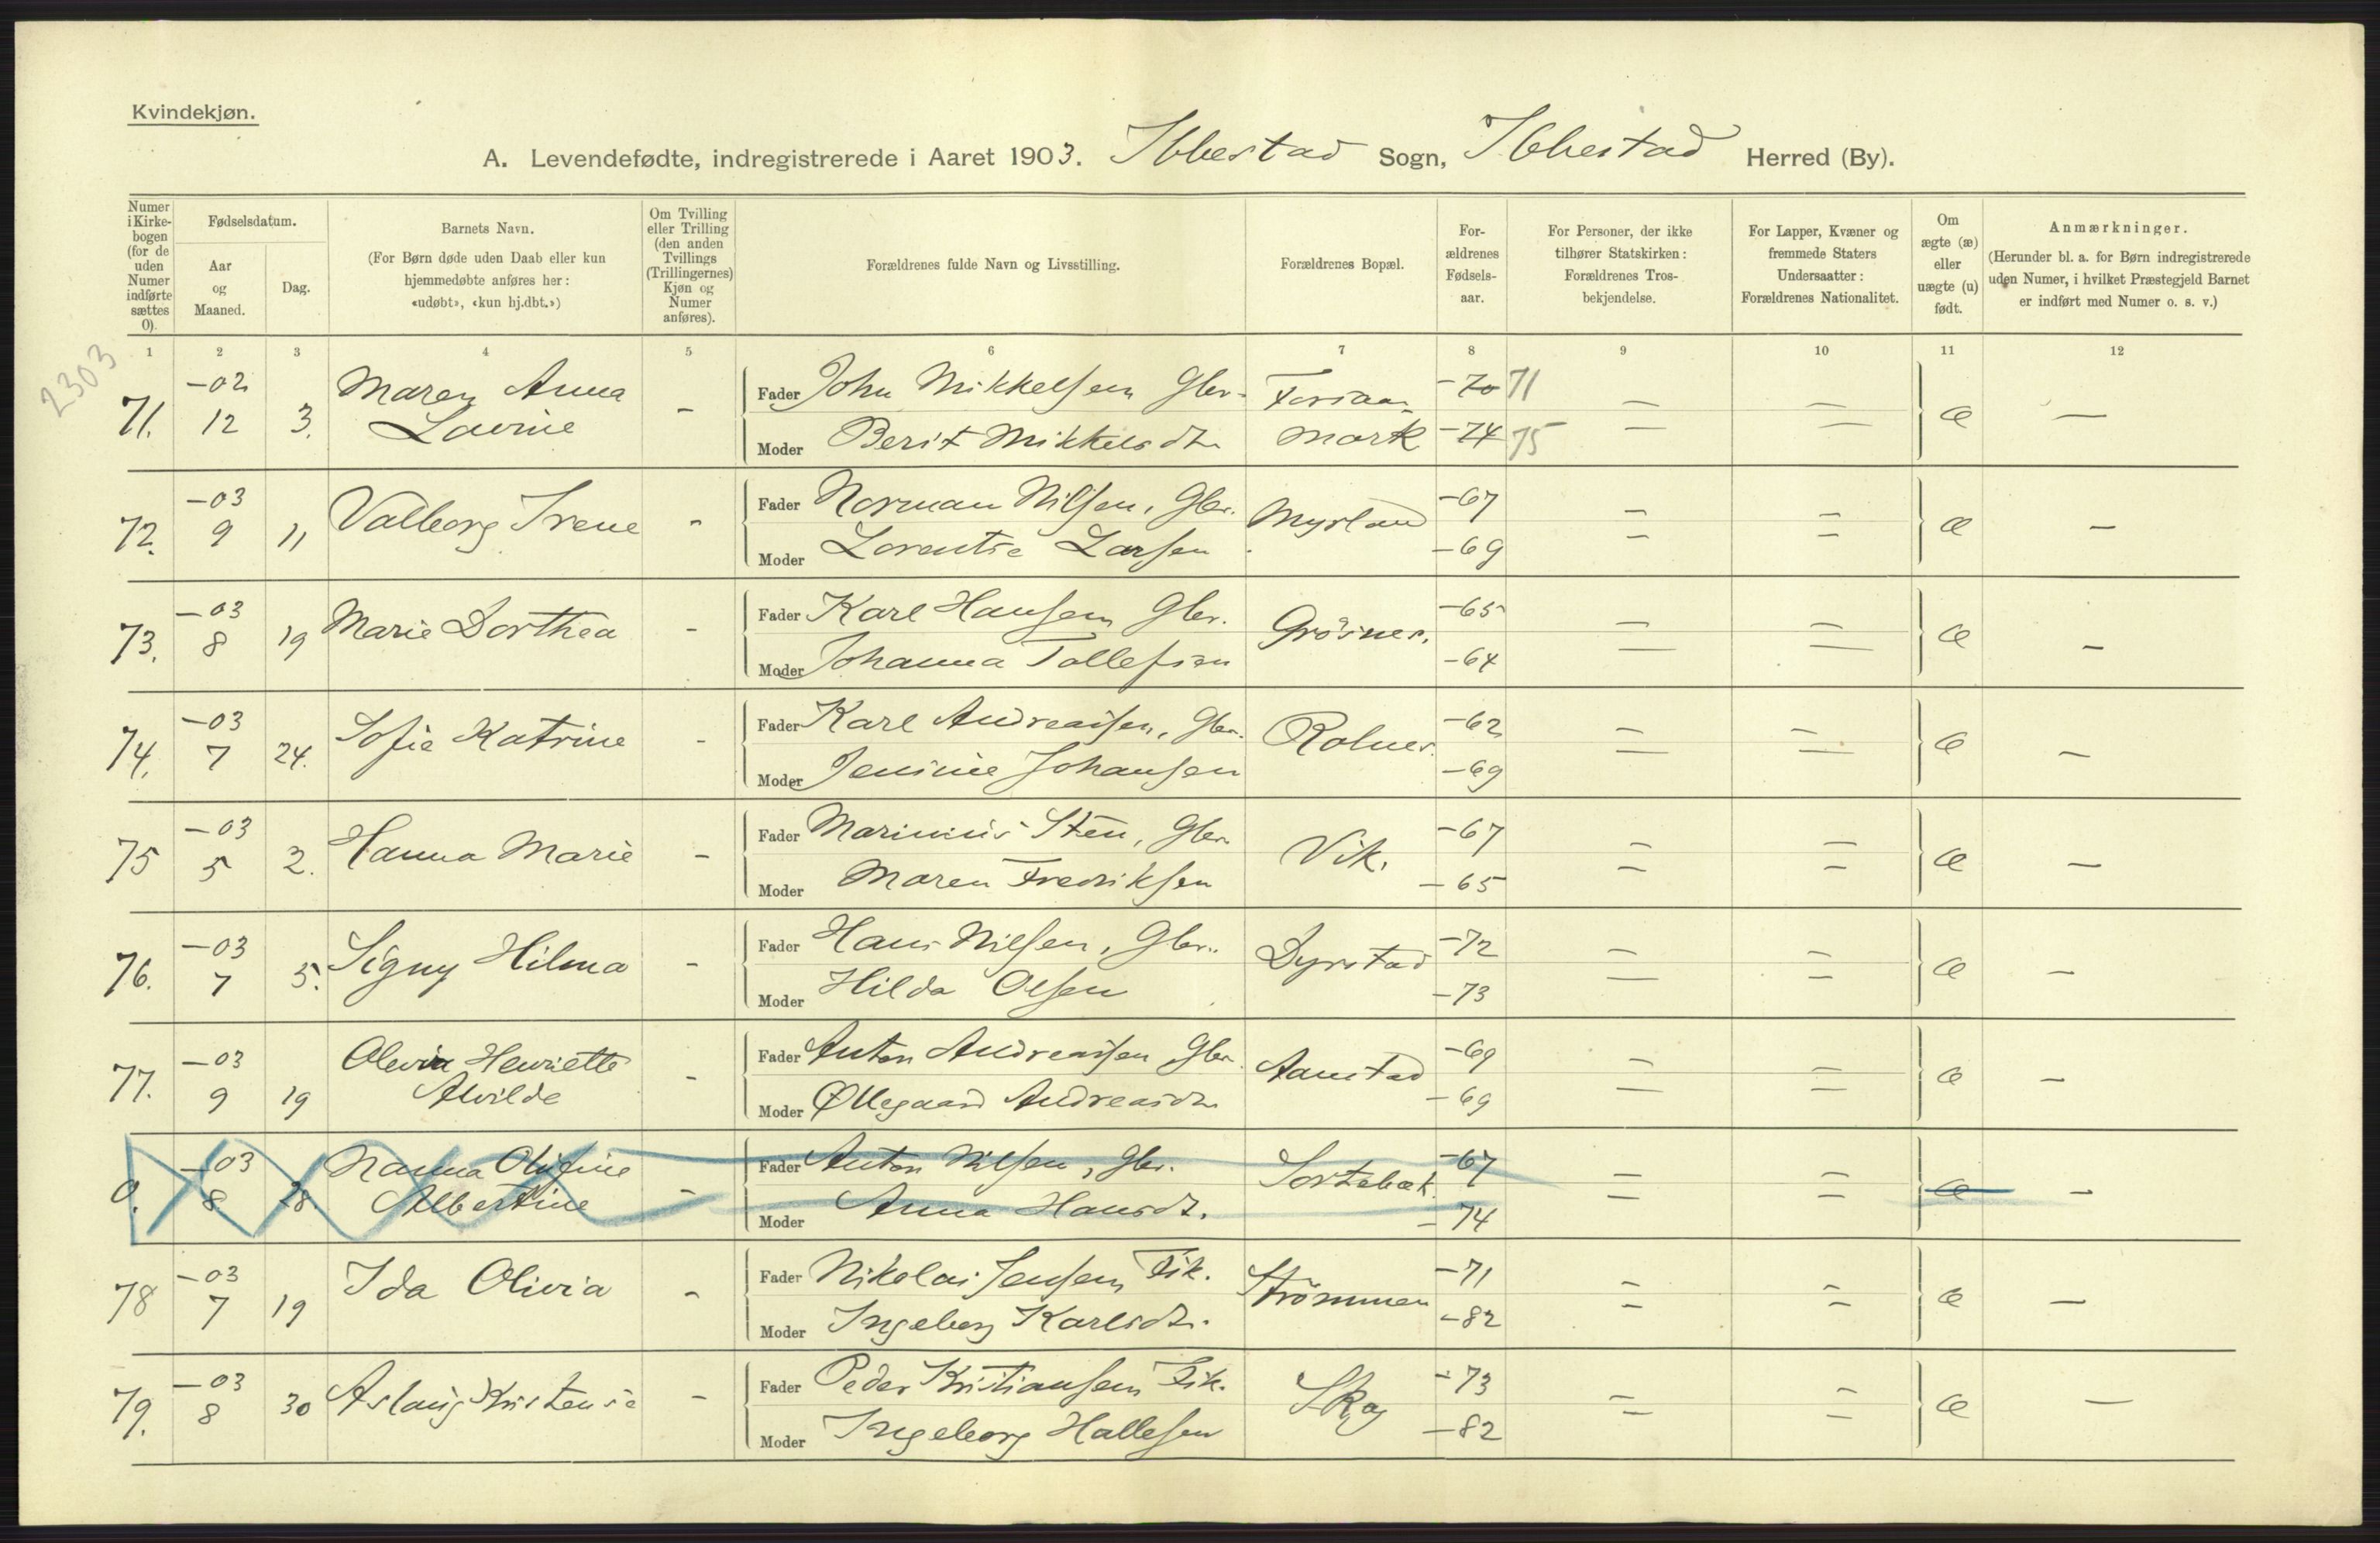 Kvindekjøn.
A. Levendefødte, indregistrerede i Aaret 1903. Ibbestad Sogn, Ibbestad Herred (By).
Numer i Kirke- bogen (for de uden Numer indførte sættes 0).
Fødselsdatum.
Aar og Maaned.
Dag.
Barnets Navn.
(For Børn døde uden Daab eller kun
hjemmedøbte anføres her:
«udøbt», «kun hj.dbt.»)
Om Tvilling
eller Trilling
(den anden
Tvillings
(Trillingernes)
Kjøn og
Numer
anføres).
Forældrenes fulde Navn og Livsstilling.
Forældrenes Bopæl.
For-
ældrenes
Fødsels-
aar.
For Personer, der ikke
tilhører Statskirken:
Forældrenes Tros-
bekjendelse.
For Lapper, Kvæner og
fremmede Staters
Undersaatter:
Forældrenes Nationalitet.
Om
ægte (æ)
eller
uægte (u)
født.
Anmærkninger.
(Herunder bl. a. for Børn indregistrerede
uden Numer, i hvilket Præstegjeld Barnet
er indført med Numer o. s. v.)
1 2 3 4 5 6 7 8 9 10 11 12
2303
71. -02 12 3. Maren Anna Lovrine - Fader John Mikkelsen Gbr. -70 71 = = æ -
Moder Berit Mikkelsdtr mark -74 75
72. -03 9 11 Valborg Irene - Fader Norman Nilsen, Gbr. Myrland -67 = = æ -
Moder Lorentse Larsen -69
73. -03 8 19 Marie Dorthea - Fader Karl Hansen Gbr. Grösnes. -65 = = æ -
Moder Johanna Tollefsen -64
74. -03 7 24. Sofie Katrine - Fader Karl Andreassen, Gbr. Rolnes. -62 = = æ -
Moder Jensine Johansen -69
75 -03 5 2. Hanna Marie - Fader Marinius Sten, Gbr. Vik. -67 = = æ -
Moder Maren Fredriksen -65
76. -03 7 5. Signy Hilma - Fader Hans Nilsen, Gbr. Dyrstad -72 = = æ -
Moder Hilda Olsen -73
77. -03 9 19 Olevia Henriette Alvilde - Fader Anton Andreassen Gbr. Aanstad -69 = = æ -
Moder Øllegaard Andreasdtr -69
0. -03 8 28. Nanna Olufine Albertine - Fader Anton Nilsen, Gbr. Sortebæk. -67 = = æ -
Moder Anna Hansdt. -74
78 -03 7 19 Ida Olivia - Fader Nikolai Jensen Fik. Strömmen -71 = = æ -
Moder Ingeborg Karlsdtr. -82
79. -03 8 30 Aslaug Kristense - Fader Peder Kristiansen Fik. Skog -73 = = æ -
Moder Ingeborg Hallesen -82